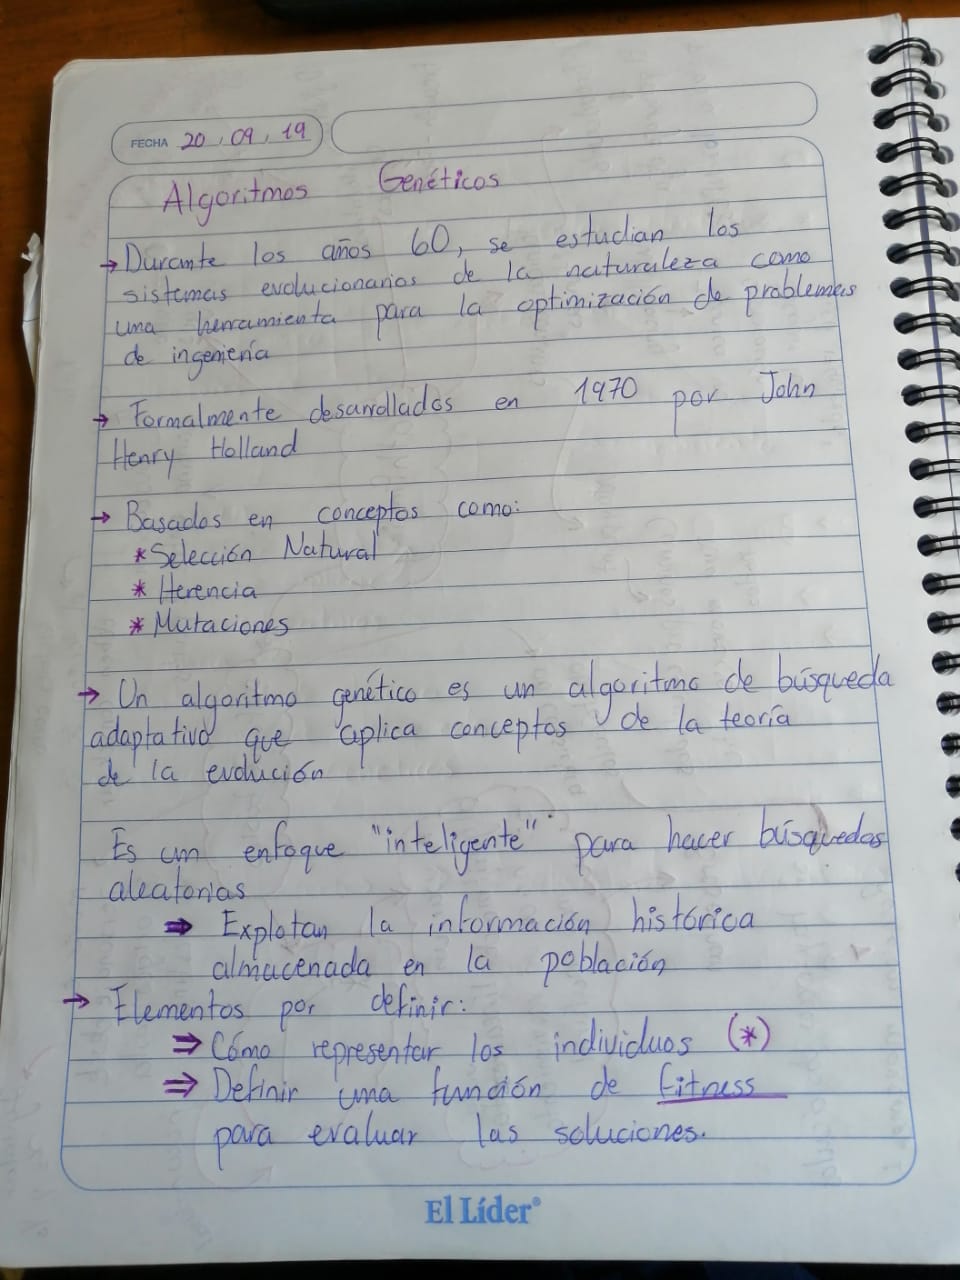 FECHA 20 . 09 . 19
Algoritmos Genéticos
→ Durante los años 60, se estudian los
sistemas evolucionarios de la naturaleza como
una herramienta para la optimización de problemas
de ingeniería
→ Formalmente desarrollados en 1970 por John
Henry Holland
→ Basados en conceptos como:
* Selección Natural
* Herencia
* Mutaciones
→ Un algoritmo genético es un algoritmo de búsqueda
adaptativo que aplica conceptos de la teoría
de la evolución
Es un enfoque "inteligente" para hacer búsquedas
aleatorias
⇒ Explotan la información histórica
almacenada en la población
→ Elementos por definir:
⇒ Cómo representar los individuos (*)
⇒ Definir una función de fitness
para evaluar las soluciones.
El Líder®